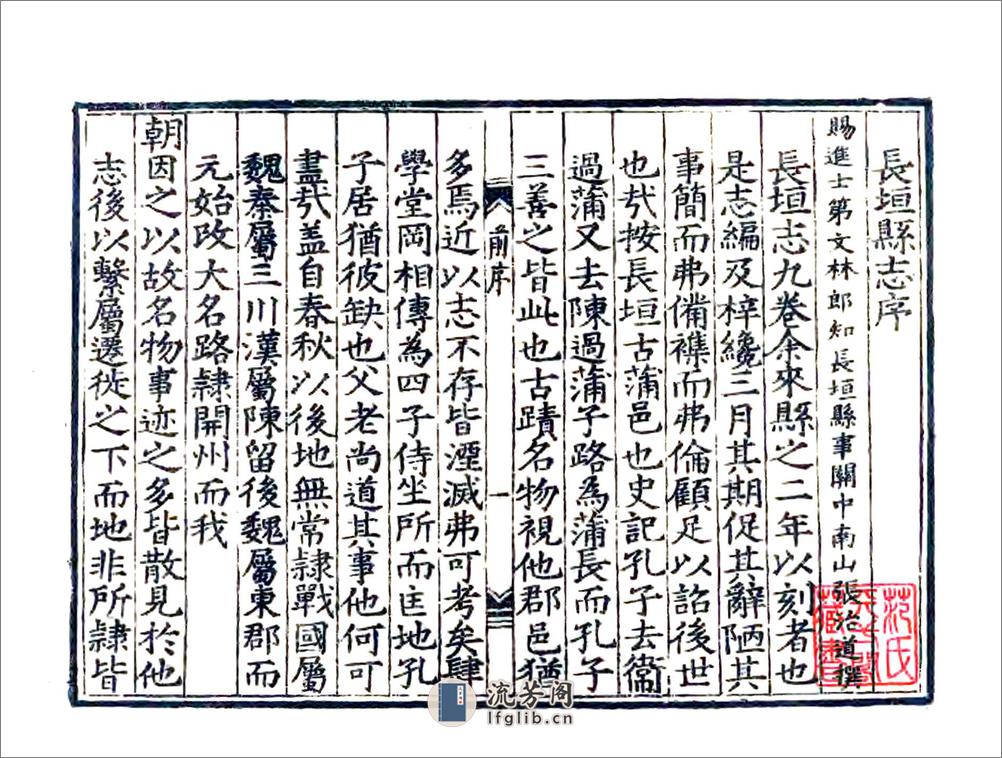 長垣縣志序
賜進士第文林郎知長垣縣事關中南山張治道撰
長垣志九卷余來縣之二年以刻者也
是志編及梓纔三月其期促其辭陋其
事簡而弗備襍而弗倫顧足以詒後世
也㢤按長垣古蒲邑也史記孔子去衞
過蒲又去陳過蒲子路為蒲長而孔子
三善之皆此也古蹟名物視他郡邑猶
前序
一
多焉近以志不存皆湮滅弗可考矣肆
學堂岡相傳為四子侍坐所而匡地孔
子居猶彼缺也父老尚道其事他何可
盡㢤盖自春秋以後地無常隷戰國屬
魏秦屬三川漢屬陳留後魏屬東郡而
元始改大名路隷開州而我
朝因之以故名物事迹之多皆散見於他
志後以繫屬遷徙之下而地非所隷皆
范氏
流芳阁
lfglib.cn